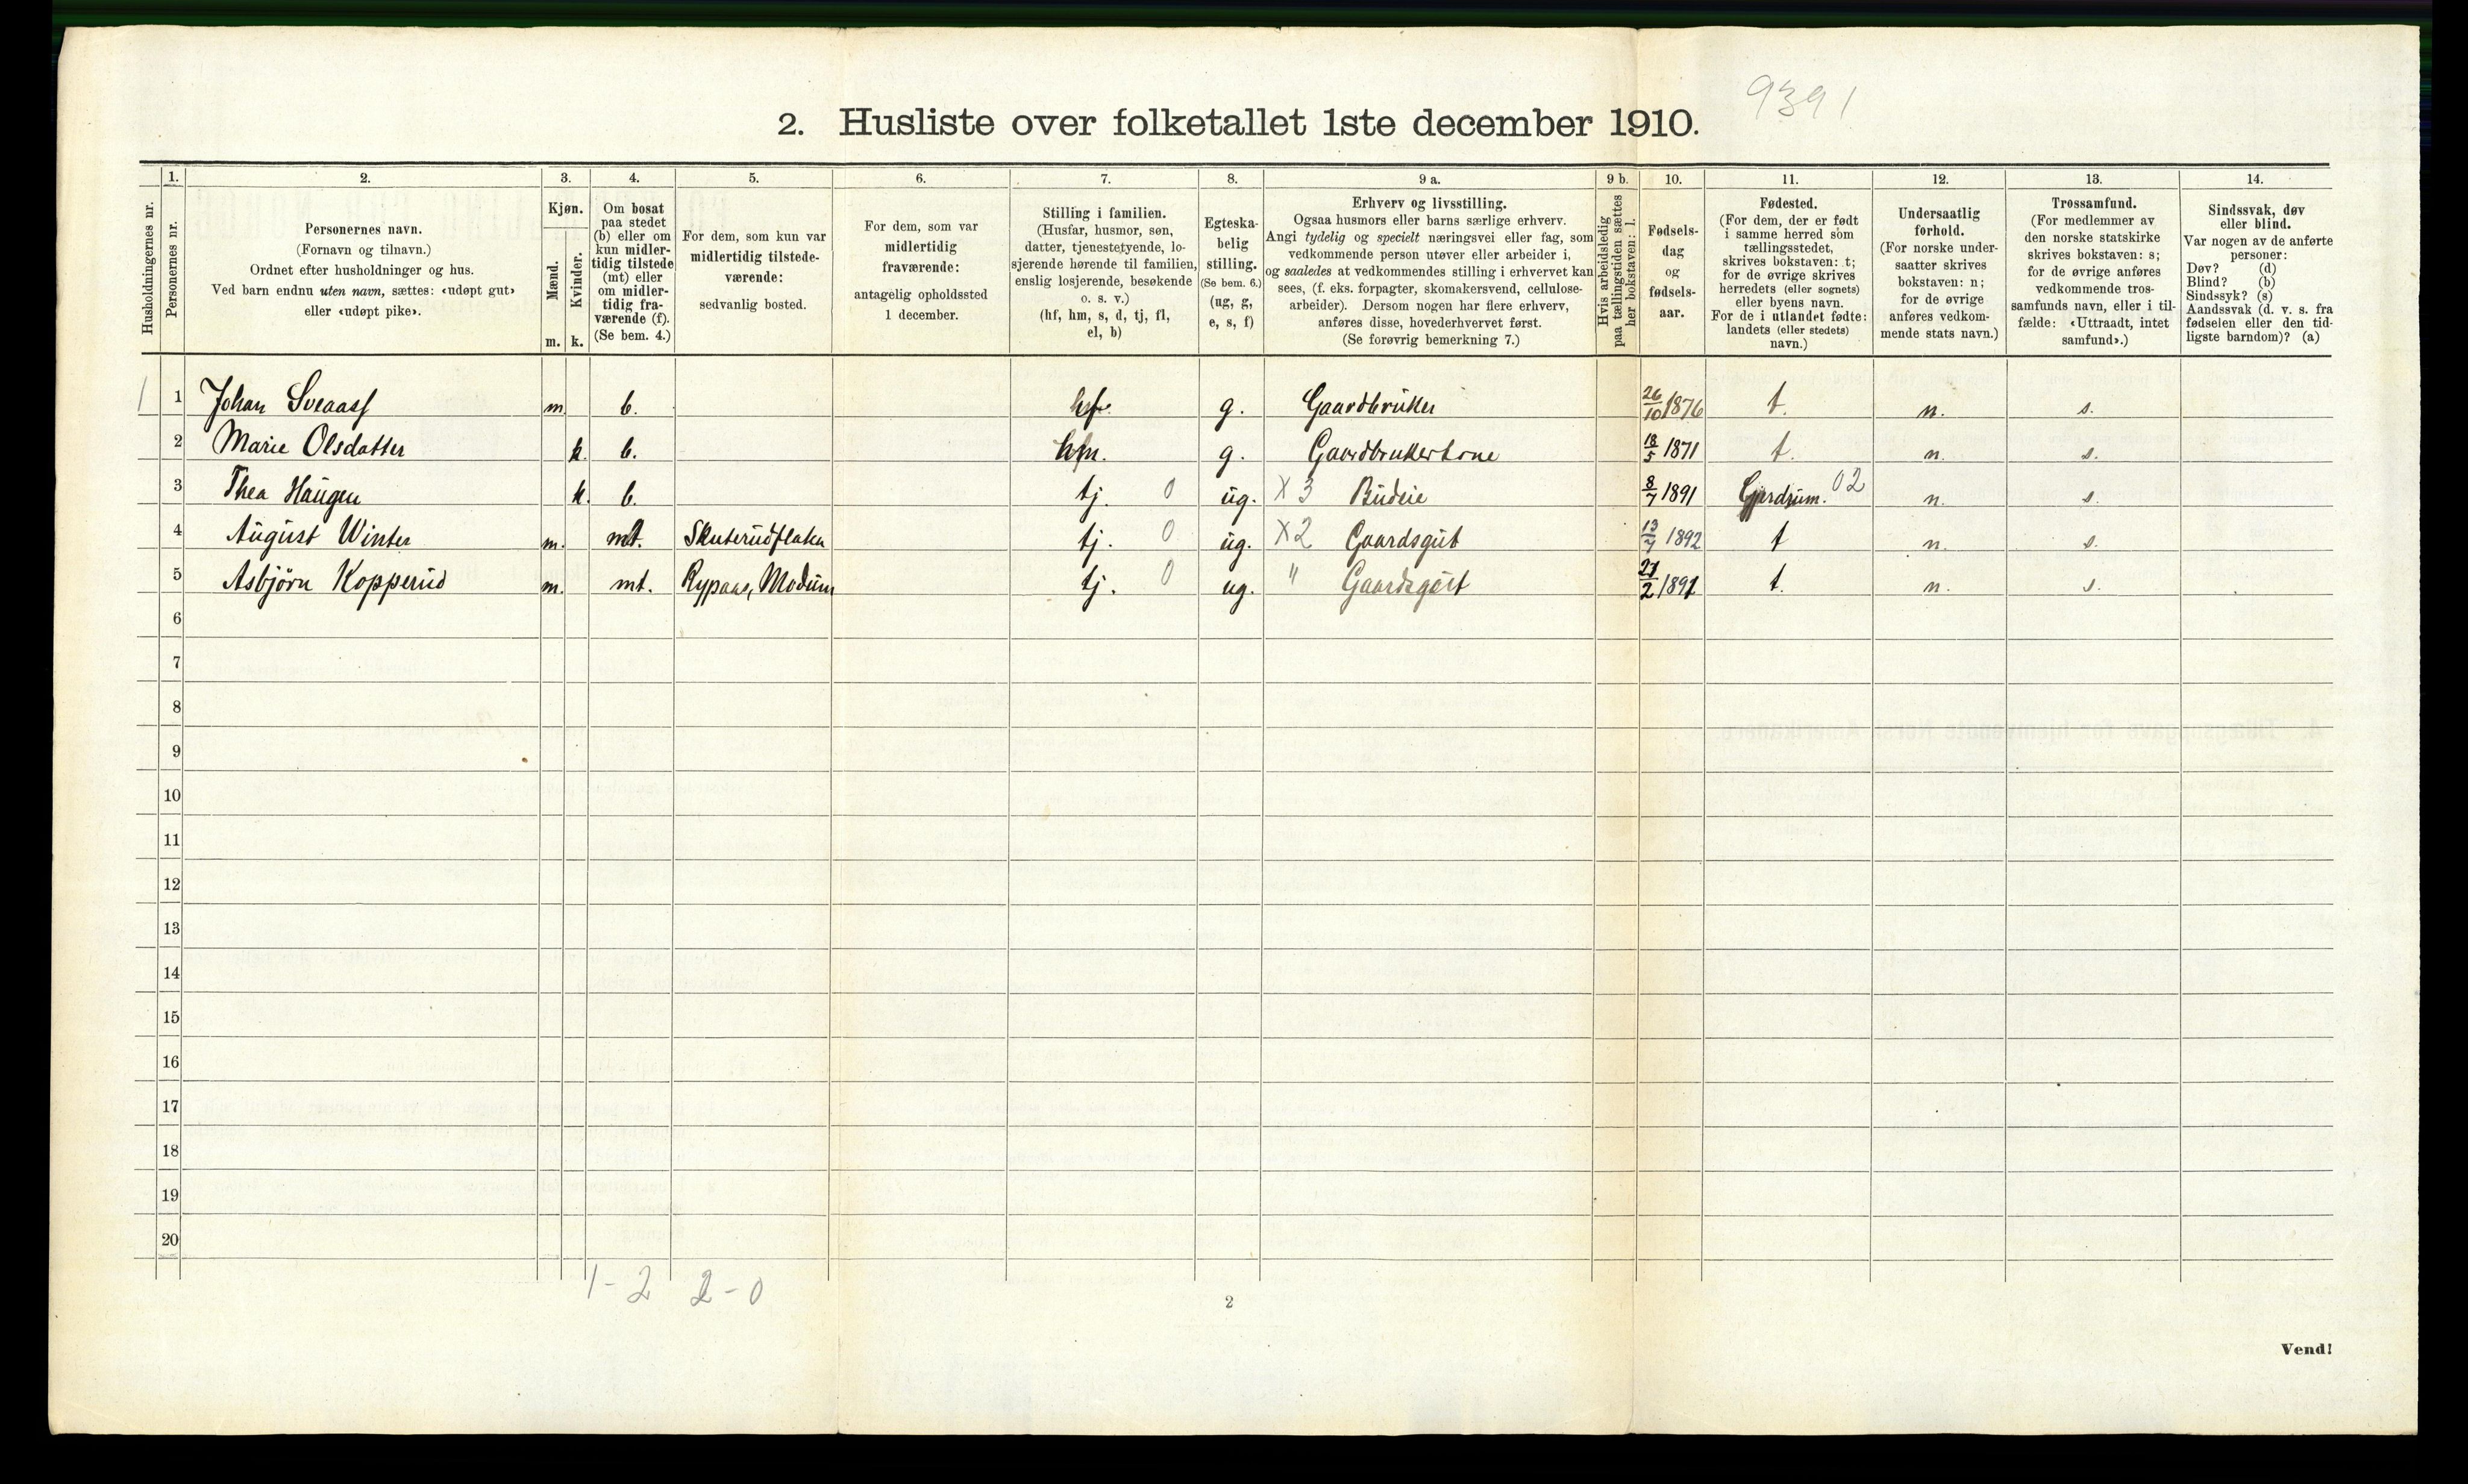 9391
2. Husliste over folketallet 1ste december 1910.
Husholdningernes nr.
1.
Personernes nr.
2.
Personernes navn.
(Fornavn og tilnavn.)
Ordnet efter husholdninger og hus.
Ved barn endnu uten navn, sættes: «udøpt gut»
eller «udøpt pike».
3.
Kjøn.
Mænd.
Kvinder.
m. k.
4.
Om bosat
paa stedet
(b) eller om
kun midler-
tidig tilstede
(mt) eller
om midler-
tidig fra-
værende (f).
(Se bem. 4.)
5.
For dem, som kun var
midlertidig tilstede-
værende:
sedvanlig bosted.
6.
For dem, som var
midlertidig
fraværende:
antagelig opholdssted
1 december.
7.
Stilling i familien.
(Husfar, husmor, søn,
datter, tjenestetyende, lo-
sjerende hørende til familien,
enslig losjerende, besøkende
o. s. v.)
(hf, hm, s, d, tj, fl,
el, b)
8.
Egteska-
belig
stilling.
(Se bem. 6.)
(ug, g,
e, s, f)
9 a.
Erhverv og livsstilling.
Ogsaa husmors eller barns særlige erhverv.
Angi tydelig og specielt næringsvei eller fag, som
vedkommende person utøver eller arbeider i,
og saaledes at vedkommendes stilling i erhvervet kan
sees, (f. eks. forpagter, skomakersvend, cellulose-
arbeider). Dersom nogen har flere erhverv,
anføres disse, hovederhvervet først.
(Se forøvrig bemerkning 7.)
9 b.
Hvis arbeidsledig
paa tællingstiden sættes
her bokstaven: l.
10.
Fødsels-
dag
og
fødsels-
aar.
11.
Fødested.
(For dem, der er født
i samme herred som
tællingsstedet,
skrives bokstaven: t;
for de øvrige skrives
herredets (eller sognets)
eller byens navn.
For de i utlandet fødte:
landets (eller stedets)
navn.)
12.
Undersaatlig
forhold.
(For norske under-
saatter skrives
bokstaven: n;
for de øvrige
anføres vedkom-
mende stats navn.)
13.
Trossamfund.
(For medlemmer av
den norske statskirke
skrives bokstaven: s;
for de øvrige anføres
vedkommende tros-
samfunds navn, eller i til-
fælde: «Uttraadt, intet
samfund».)
14.
Sindssvak, døv
eller blind.
Var nogen av de anførte
personer:
Døv? (d)
Blind? (b)
Sindssyk? (s)
Aandssvak (d. v. s. fra
fødselen eller den tid-
ligste barndom)? (a)
1 1 Johan Sveaas m. b. hf. g. Gaardbruker 26/10 1876 t. n. s.
2 Marie Olsdatter k. b. hm. g. Gaardbrukerkone 18/5 1871 t. n. s.
3 Thea Haugen k. b. tj. 0 ug. X 3 Budeie 8/7 1891 Gjerdrum. 02 n. s.
4 August Winter m. mt. Skuterudflaten tj. 0 ug. X2 Gaardsgut 13/7 1892 t n. s.
5 Asbjörn Kopperud m. mt. Rypaas, Modum tj. 0 ug. " Gaardsgut 21/2 1891 t. n. s.
6
7
8
9
10
11
12
13
14
15
16
17
18
19
20
1-2 2-0
2
Vend!